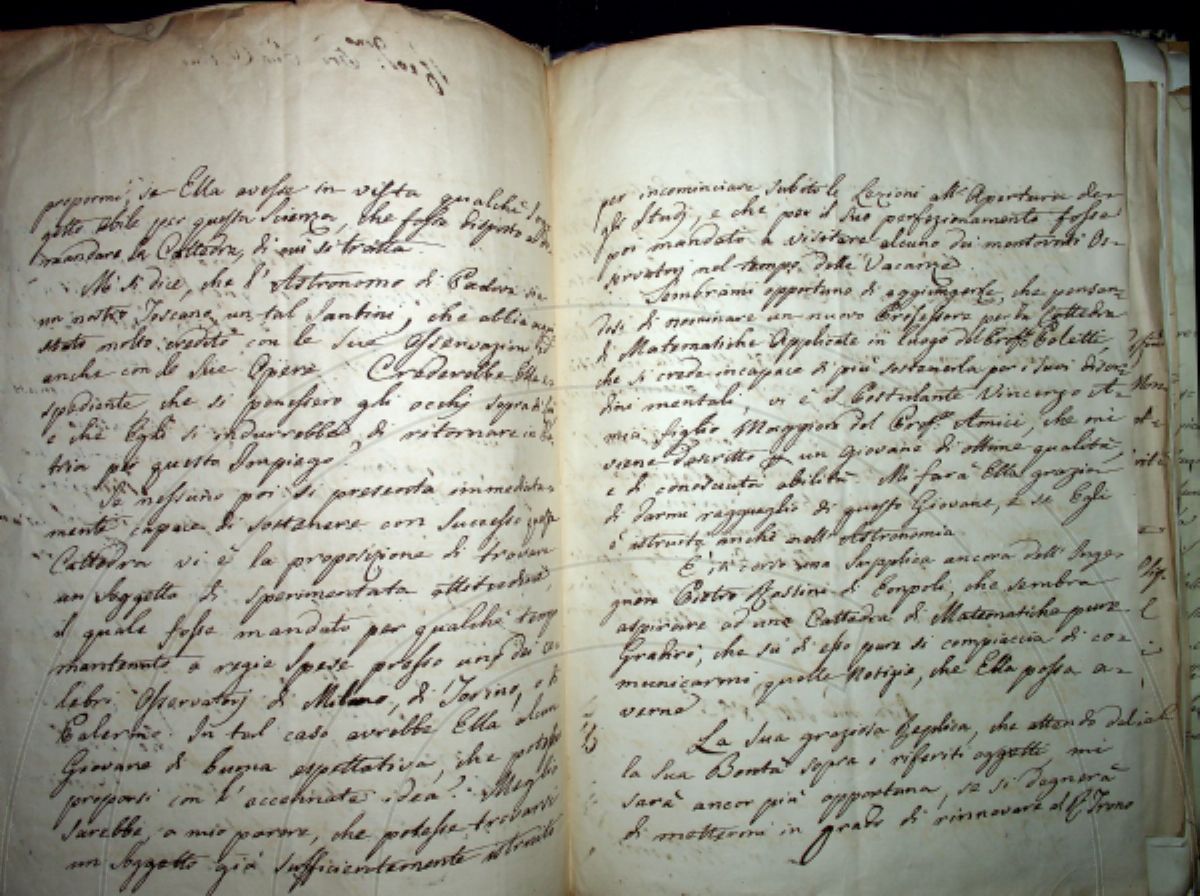 propormi, se Ella avesse in vista qualche Sog
getto abile per questa Scienza, che fosse disposto a di
mandare la Cattedra, di cui si tratta.
Mi si dice, che l'Astronomo di Padova sia
un nostro Toscano, un tal Santini, che abbia
stato molto credito con le sue Osservazioni
anche con le Sue Opere. Crederebbe Ella e
spediente, che si ponessero gli occhj sopra di
e che Egli si indurrebbe di ritornare in Pa
tria per questo Impiego?
Se nessuno poi si presenta immediata
mente capace di sostenere con successo questa
Cattedra vi è la proposizione di trovare
un Soggetto di sperimentata attitudine
il quale fosse mandato per qualche tempo
mantenuto a regie spese presso uno dei ce
lebri Osservatorj di Milano, di Torino, o di
Palermo. In tal caso avrebbe Ella alcun
Giovane di buona espettativa, che potesse
proporsi con l'accennata idea? Meglio
sarebbe, a mio parere, che potesse trovarsi
un Soggetto già sufficientemente istruito
per incominciare subito le Lezioni all'Apertura de
gli Studj, e che per il Suo perfezionamento fosse
poi mandato a visitare alcuno dei mentovati Os=
servatorj nel tempo delle Vacanze.
Sembrami opportuno di aggiungerle, che pensan=
dosi di nominare un nuovo Professore per la Cattedra
di Matematiche Applicate in luogo del Prof. Poletti,
che si crede incapace di più sostenerla per i suoi disor=
dini mentali, vi è il Postulante Vincenzo A=
mici, figlio Maggiore del Prof. Amici, che mi
viene descritto un Giovane di ottime qualità,
e di conosciuta abilità. Mi farà Ella grazia
di darmi ragguaglio di questo Giovane, e se Egli
è istruito anche nell'Astronomia.
È una Supplica ancora dell'Inge
gnere Pietro Rossini di Empoli, che sembra
aspirare ad una Cattedra di Matematiche pure.
Gradirò, che su di esso pure si compiaccia di co=
municarmi quelle Notizie, che Ella possa a=
verne.
La Sua graziosa Replica, che attendo dal
la Sua Bontà sopra i riferiti oggetti, mi
sarà ancor più opportuna, se si degnerà
di mettermi in grado di rinnovare al R. Trono